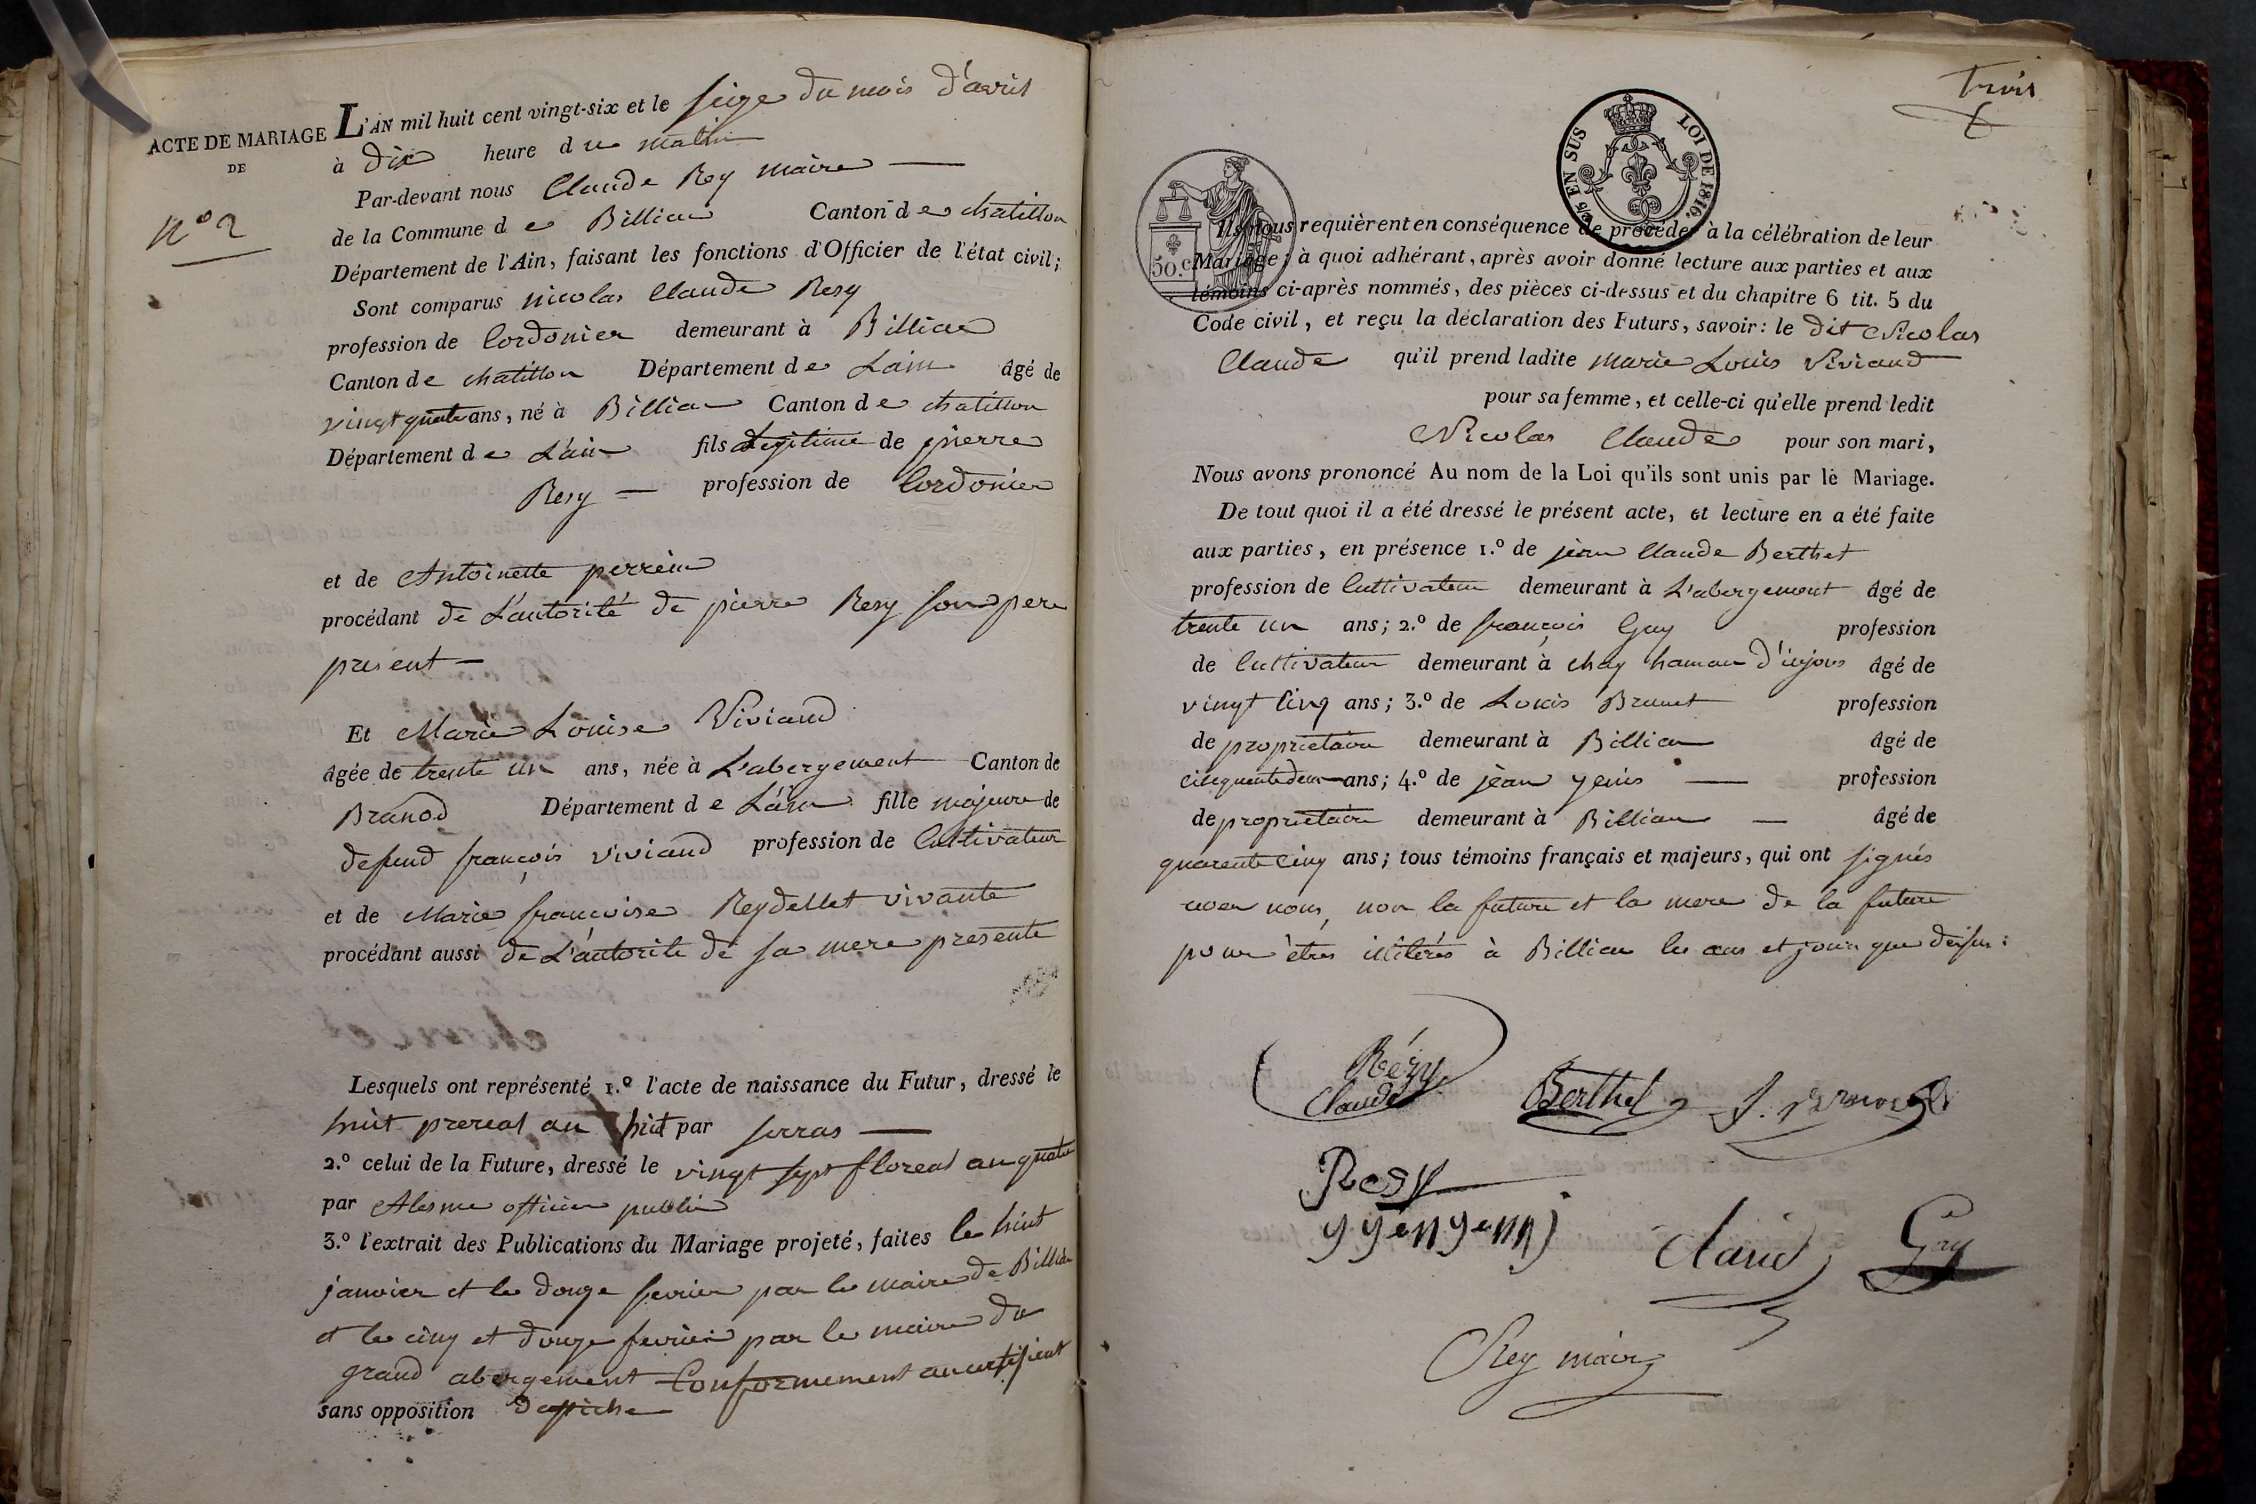 ACTE DE MARIAGE
DE
N° 2
L'AN mil huit cent vingt-six et le seize du mois d'avril
à dix heure du matin
Par-devant nous Claude Rey maire
de la Commune de Billiat Canton de chatillon
Département de l'Ain, faisant les fonctions d'Officier de l'état civil;
Sont comparus nicolas Claude Resy
profession de Cordonier demeurant à Billiat
Canton de chatillon Département de Lain âgé de
vingt quatre ans, né à Billiat Canton de chatillon
Département de L'ain fils Legitime de pierre
Resy profession de Cordonier
et de Antoinette perrein
procédant de L'autorité de pierre Resy son pere
present
Et Marie Louise Viviand
âgée de trente un ans, née à L'abergement Canton de
Branod Département de L'ain fille majeure de
defund françois viviand profession de Cultivateur
et de Marie francoise Reydellet vivante
procédant aussi de L'autorite de sa mere presente
Lesquels ont représenté 1.º l'acte de naissance du Futur, dressé le
huit prereal an huit par serras
2.º celui de la Future, dressé le vingt sept floreal an quatre
par officier public
3.º l'extrait des Publications du Mariage projeté, faites le huit
janvier et le douze fevrier par le maire de Billiat
et le cinq et douze fevrier par le maire du
grand abergement Conformement au certificat
sans opposition d'affiche
Trois
EN SUS LOI DE 1816.
50.c
Ils nous requièrent en conséquence de procéder à la célébration de leur
Mariage; à quoi adhérant, après avoir donné lecture aux parties et aux
témoins ci-après nommés, des pièces ci-dessus et du chapitre 6 tit. 5 du
Code civil, et reçu la déclaration des Futurs, savoir: le dit Nicolas
Claude qu'il prend ladite marie Louis Viviand
pour sa femme, et celle-ci qu'elle prend ledit
Nicolas Claude pour son mari,
Nous avons prononcé Au nom de la Loi qu'ils sont unis par le Mariage.
De tout quoi il a été dressé le présent acte, et lecture en a été faite
aux parties, en présence 1.º de jean Claude Berthet
profession de Cultivateur demeurant à L'abergement âgé de
trente un ans; 2.º de françois Gay profession
de Cultivateur demeurant à chay hamau d'injoux âgé de
vingt Cinq ans; 3.º de Louis Brunet profession
de proprietaire demeurant à Billiat âgé de
cinquente deux ans; 4.º de jean genis profession
de proprietaire demeurant à Billiat âgé de
quarente Cinq ans; tous témoins français et majeurs, qui ont signés
avec nous, non la future et la mere de la future
pour êtres illiterés à Billiat les ans et jour que dessus:
Rézy
Claude
Berthet
Resy
Claude
Gay
Rey maire